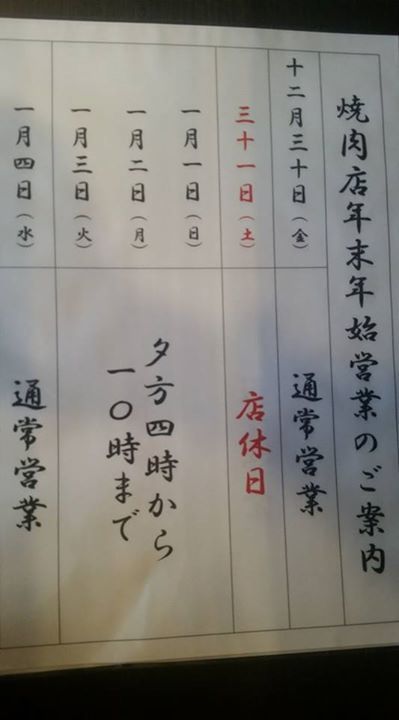 焼肉店年末年始営業のご案内
十二月三十日（金）
通常営業
三十一日（土）
店休日
一月一日（日）
一月二日（月）
一月三日（火）
夕方四時から
一〇時まで
一月四日（水）
通常営業